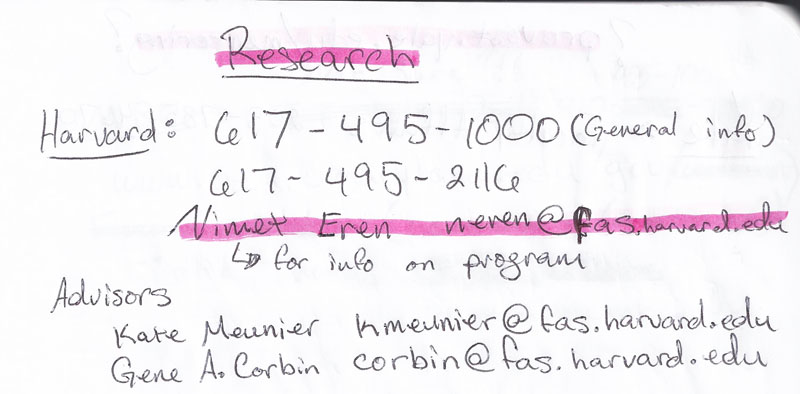 Research
Harvard: 617-495-1000 (General info)
617-495-2116
Nimet Eren neren@fas.harvard.edu
↳ for info on program
Advisors
Kate Meunier kmeunier@fas.harvard.edu
Gene A. Corbin corbin@fas.harvard.edu